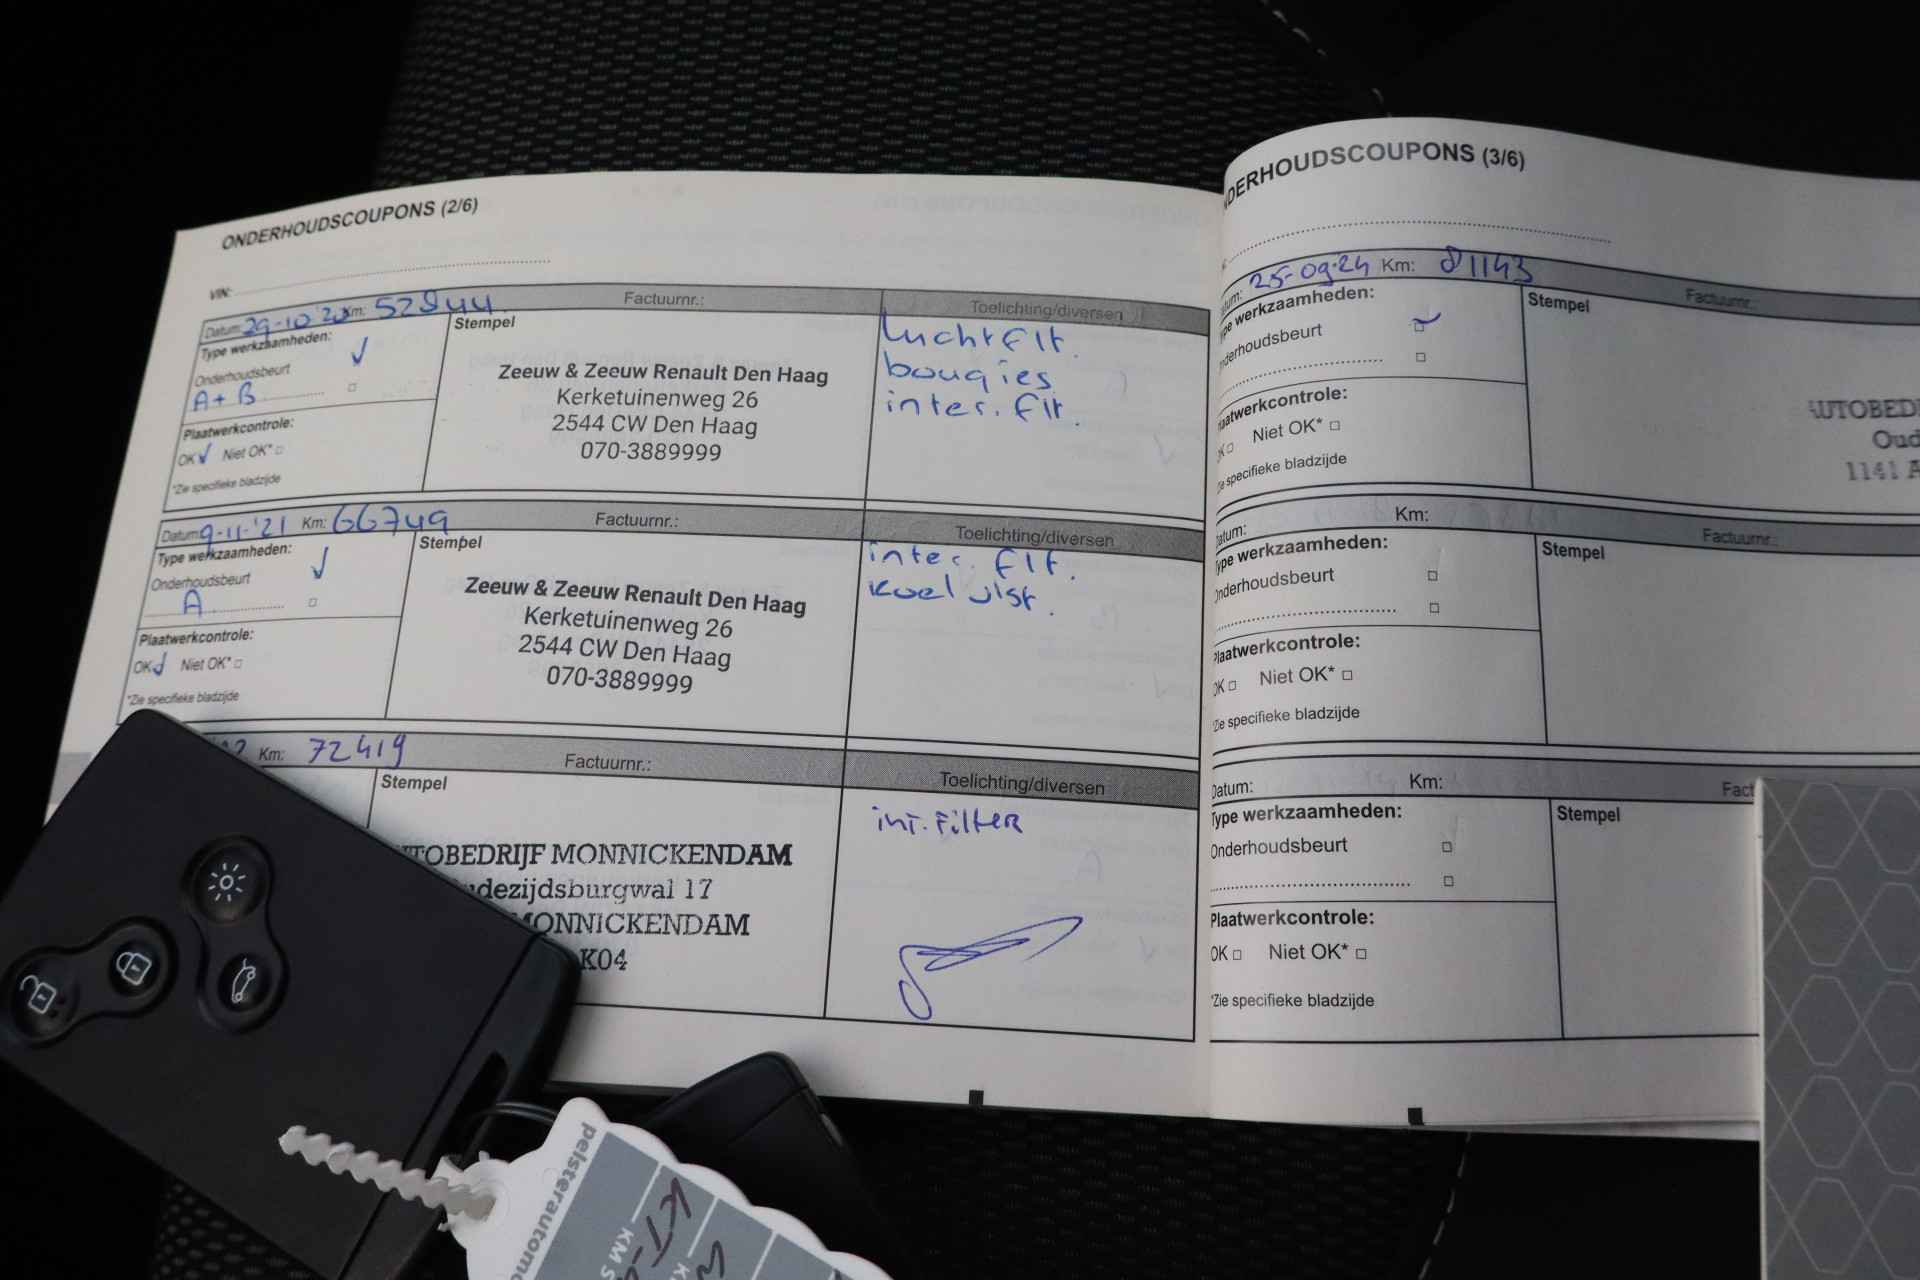 ONDERHOUDSCOUPONS (2/6)
VIN:
Datum: 29-10-'20 Km: 52844 Factuurnr.: Toelichting/diversen
Type werkzaamheden:
Onderhoudsbeurt
A+B
Plaatwerkcontrole:
OK Niet OK*
*Zie specifieke bladzijde
Stempel
Zeeuw & Zeeuw Renault Den Haag
Kerketuinenweg 26
2544 CW Den Haag
070-3889999
luchtflt.
bougies
inter. flt.
Datum: 9-11-'21 Km: 66749 Factuurnr.: Toelichting/diversen
Type werkzaamheden:
Onderhoudsbeurt
A
Plaatwerkcontrole:
OK Niet OK*
*Zie specifieke bladzijde
Stempel
Zeeuw & Zeeuw Renault Den Haag
Kerketuinenweg 26
2544 CW Den Haag
070-3889999
inter. flt.
koelvlst.
Km: 72419 Factuurnr.: Toelichting/diversen
Stempel
TOBEDRIJF MONNICKENDAM
udezijdsburgwal 17
MONNICKENDAM
K04
int. Filter
NDERHOUDSCOUPONS (3/6)
tum: 25-09-24 Km: 81143 Factuurnr.:
pe werkzaamheden:
nderhoudsbeurt
laatwerkcontrole:
OK Niet OK*
Zie specifieke bladzijde
Stempel
AUTOBED
Oud
1141 A
atum: Km: Factuurnr.:
Type werkzaamheden:
Onderhoudsbeurt
Plaatwerkcontrole:
OK Niet OK*
*Zie specifieke bladzijde
Stempel
Datum: Km: Fact
Type werkzaamheden:
Onderhoudsbeurt
Plaatwerkcontrole:
OK Niet OK*
*Zie specifieke bladzijde
Stempel
pelsterautomo
KM S